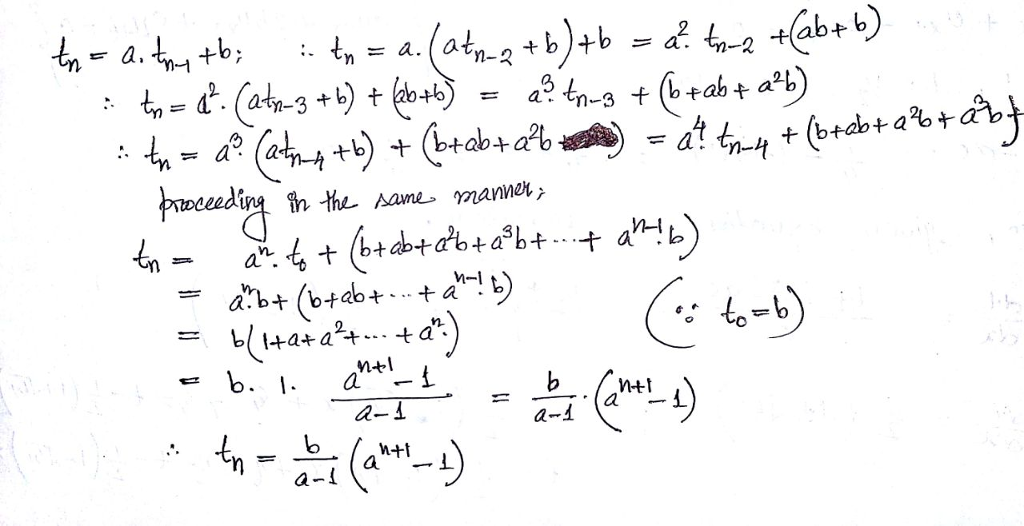 tₙ = a. tₙ₋₁ + b; ∴ tₙ = a. (atₙ₋₂ + b) + b = a². tₙ₋₂ + (ab + b)
∴ tₙ = a². (atₙ₋₃ + b) + (ab + b) = a³. tₙ₋₃ + (b + ab + a²b)
∴ tₙ = a³. (atₙ₋₄ + b) + (b + ab + a²b) = a⁴. tₙ₋₄ + (b + ab + a²b + a³b)
proceeding in the same manner;
tₙ = aⁿ. t₀ + (b + ab + a²b + a³b + ... + aⁿ⁻¹. b)
= aⁿ. b + (b + ab + ... + aⁿ⁻¹. b)
(∵ t₀ = b)
= b(1 + a + a² + ... + aⁿ.)
= b. 1. (aⁿ⁺¹ - 1)/(a - 1) = b/(a - 1) . (aⁿ⁺¹ - 1)
∴ tₙ = b/(a - 1) (aⁿ⁺¹ - 1)